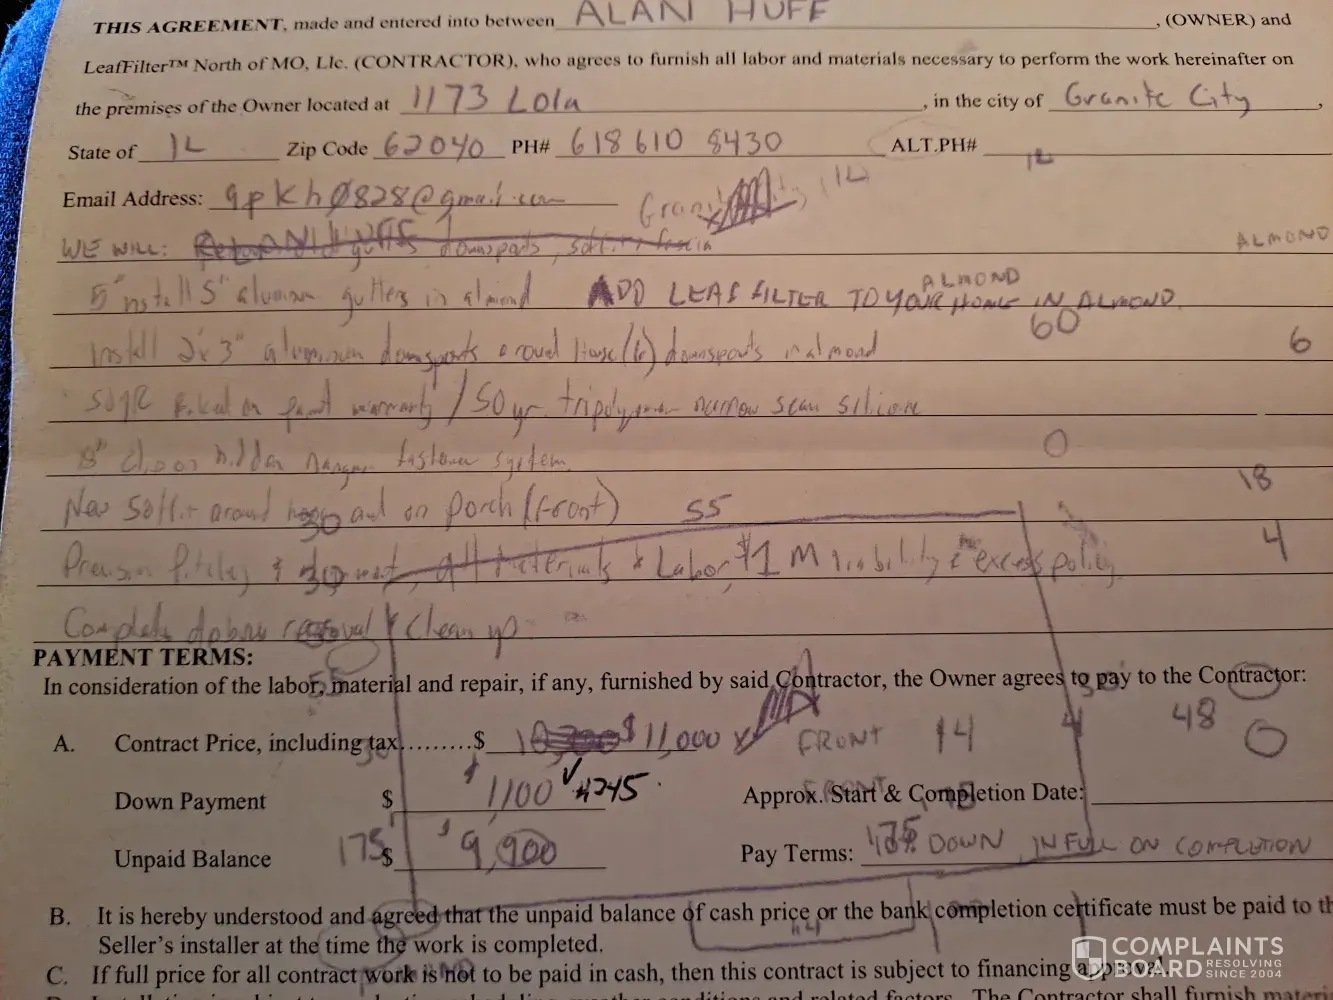 THIS AGREEMENT, made and entered into between ALAN HUFF, (OWNER) and
LeafFilter™ North of MO, Llc. (CONTRACTOR), who agrees to furnish all labor and materials necessary to perform the work hereinafter on
the premises of the Owner located at 1173 Lola, in the city of Granite City,
State of IL Zip Code 62040 PH# 618 610 8430 ALT.PH#
IL
Email Address: @gmail.com
IL
WE WILL: downspouts, soffit & fascia
ALMOND
Install 5" aluminum gutters in almond ADD LEAF FILTER TO YOUR HOME IN ALMOND
ALMOND
60
Install 2x3" aluminum downspouts around House (6) downspouts in almond 6
Baked on paint warranty / 50 yr. tripolymer narrow seam silicone
8" clip on hidden hanger fastener system 0
18
New soffit around and on porch (front) 55
Precision & All Materials & Labor, $1M liability & excess policy 4
Complete debris removal & Clean up
PAYMENT TERMS:
In consideration of the labor, material and repair, if any, furnished by said Contractor, the Owner agrees to pay to the Contractor:
A. Contract Price, including tax.........$ $11,000 x FRONT 14 4 48 0
Down Payment $ $1100 ✓ #4245 Approx. Start & Completion Date:
Unpaid Balance 175 $ $9,900 Pay Terms: DOWN, IN FULL ON COMPLETION
B. It is hereby understood and agreed that the unpaid balance of cash price or the bank completion certificate must be paid to th
Seller's installer at the time the work is completed.
C. If full price for all contract work is not to be paid in cash, then this contract is subject to financing approval.
COMPLAINTS
BOARD RESOLVING SINCE 2004
The Contractor shall furnish materi